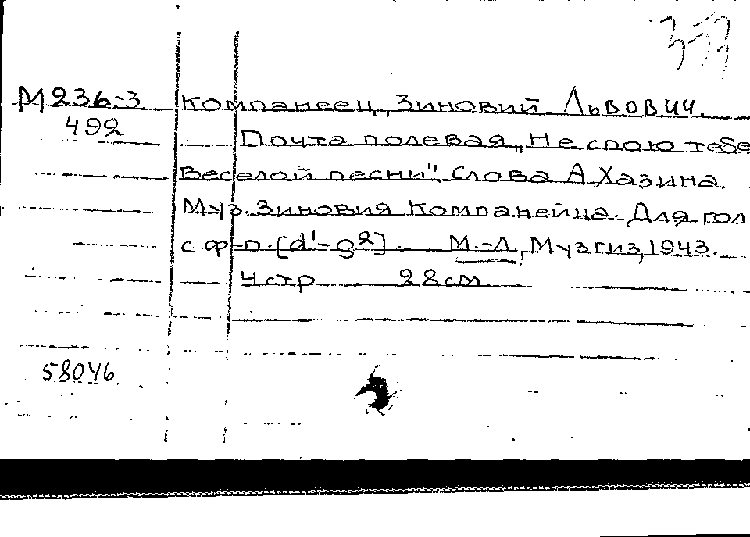 М236-3
492
Компанеец, Зиновий Львович.
Почта полевая, "Не спою тебе
веселой песни". Слова А. Хазина.
Муз. Зиновия Компанейца. Для гол
с ф-п. [d'-g²]. М.-Л., Музгиз, 1943.
4 стр 28см
58046